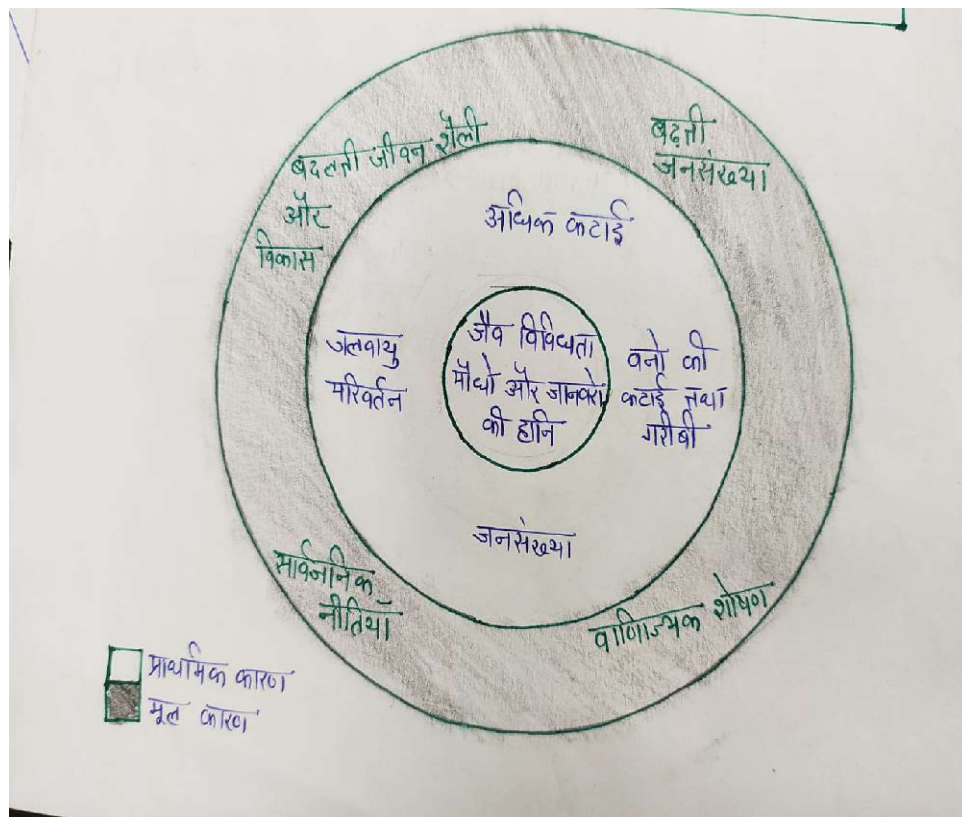 बदलती जीवन शैली
और
विकास
बढ़ती
जनसंख्या
अधिक कटाई
जलवायु
परिवर्तन
जैव विविधता
पौधो और जानवरो
की हानि
वनो की
कटाई तथा
गरीबी
जनसंख्या
सार्वजनिक
नीतियाँ
वाणिज्यक शोषण
प्राथमिक कारण
मूल कारण